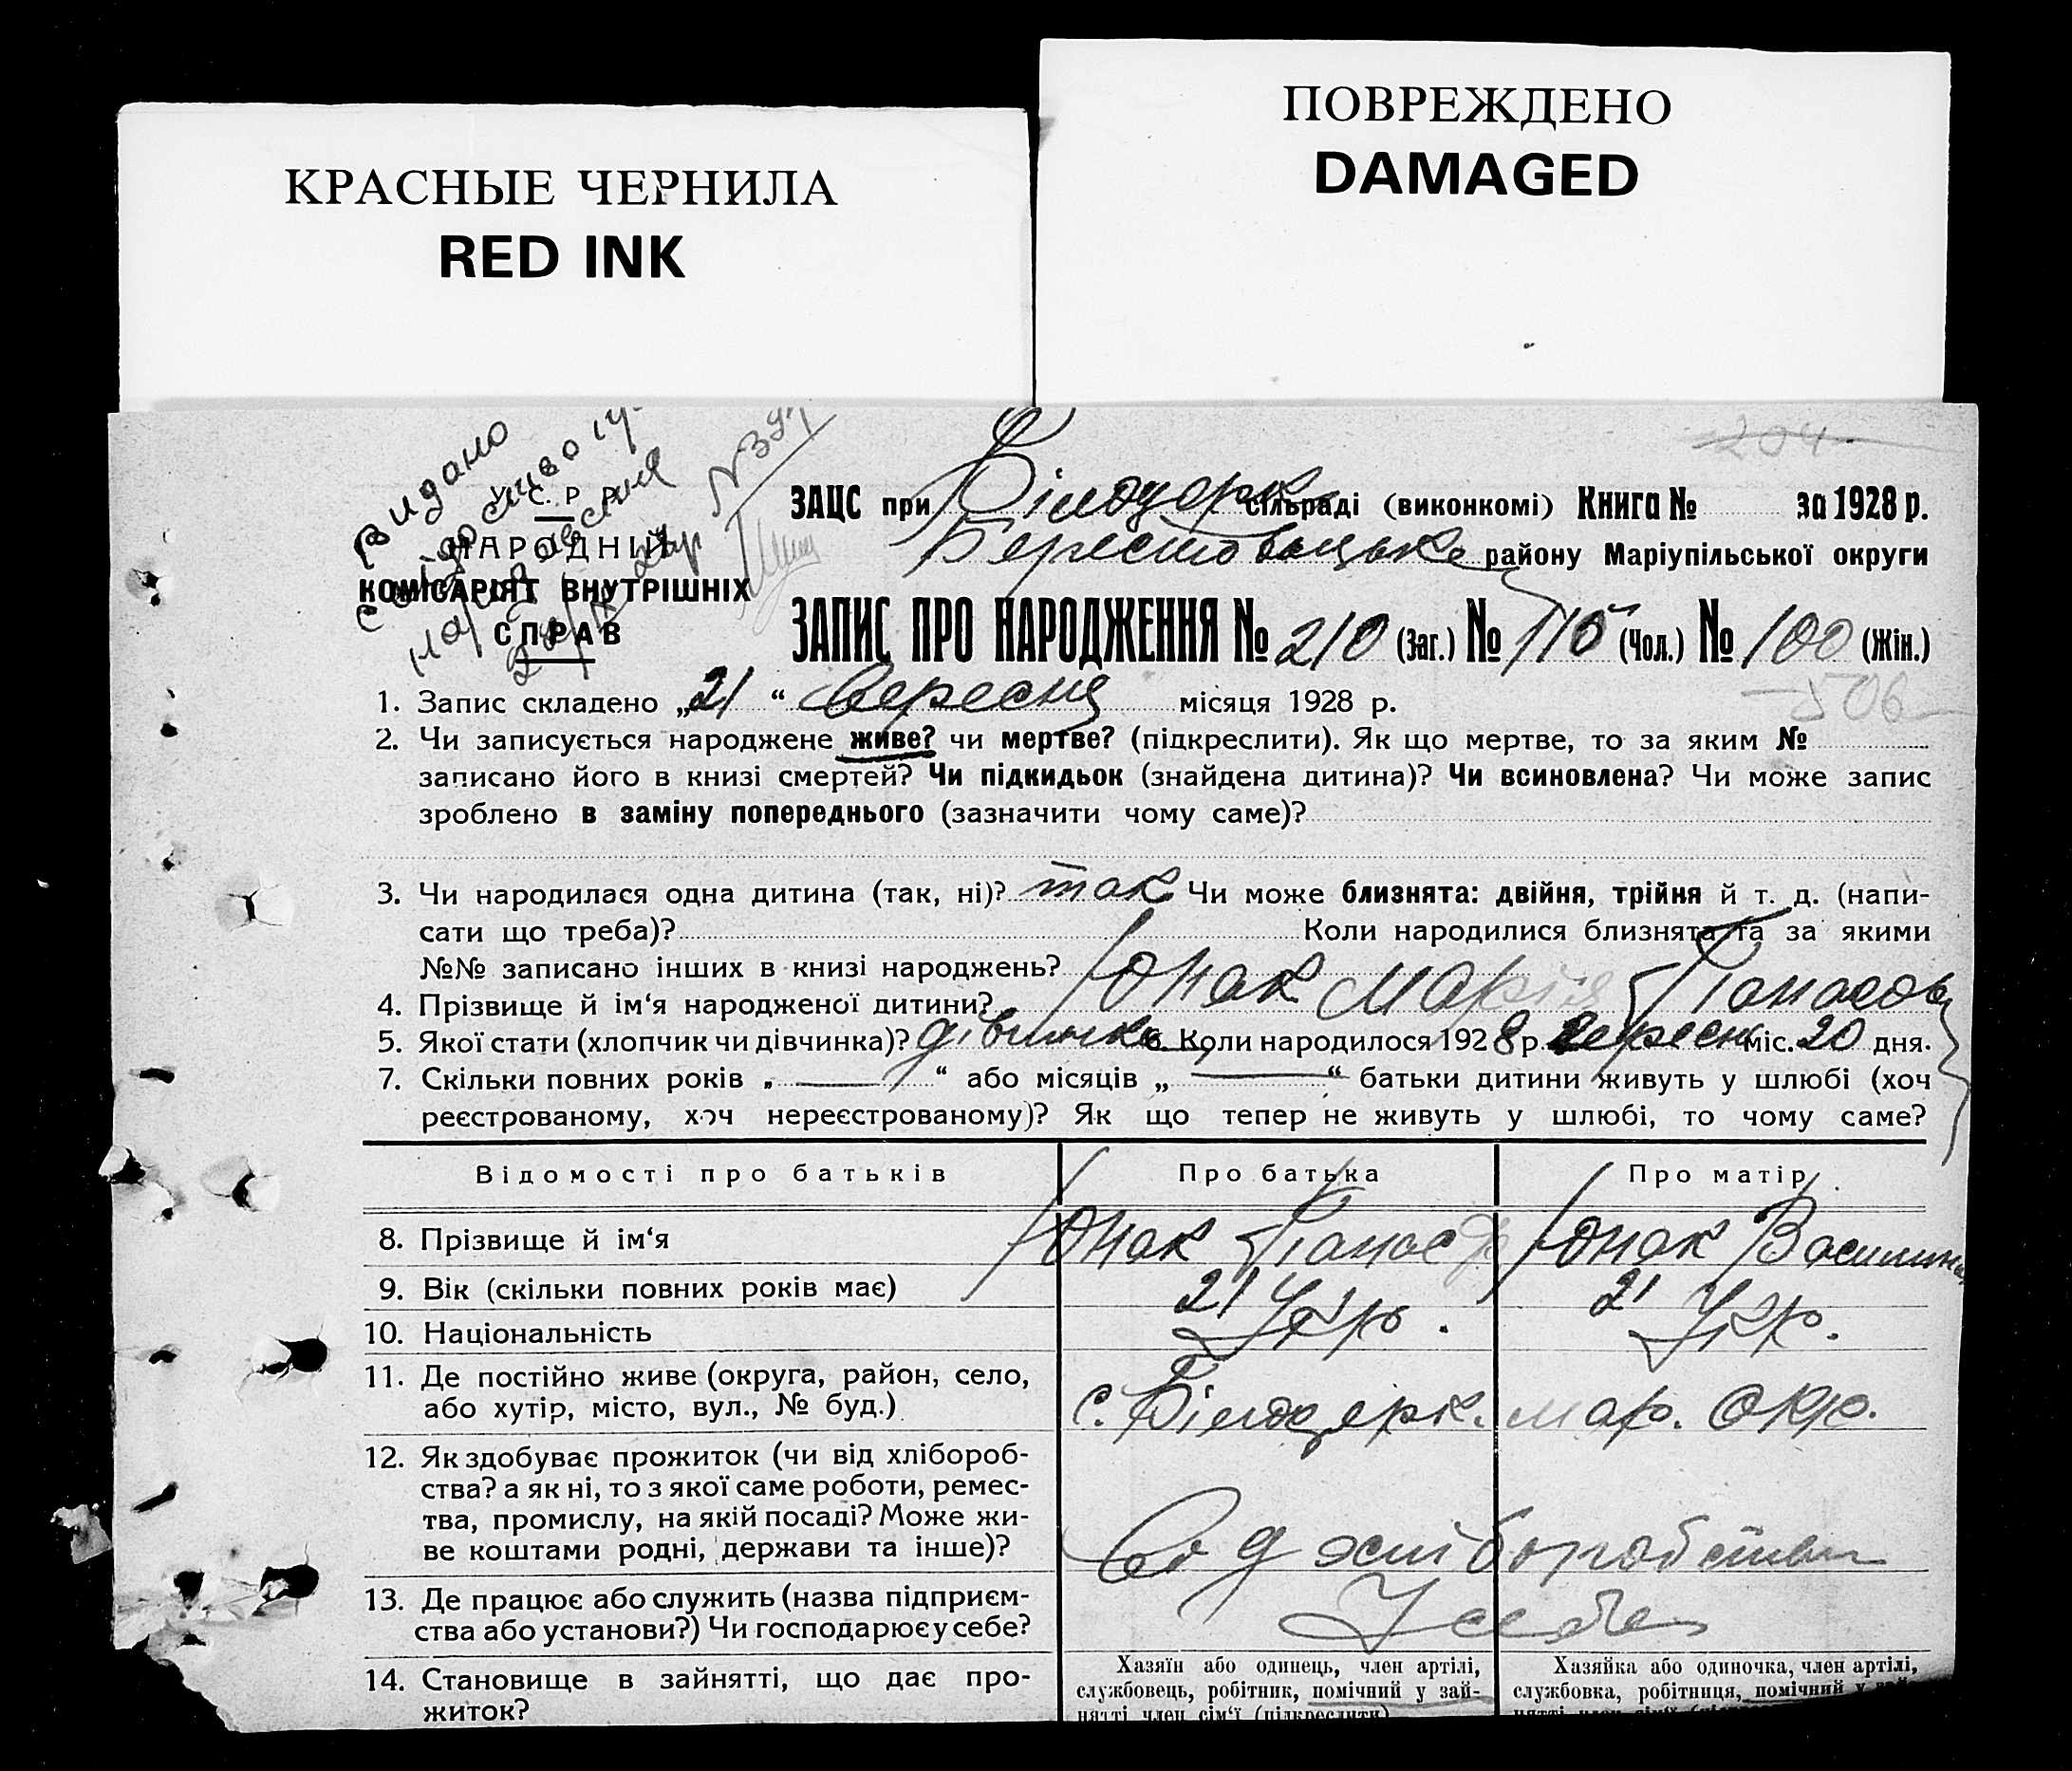 КРАСНЫЕ ЧЕРНИЛА
RED INK
ПОВРЕЖДЕНО
DAMAGED
204
Видано
У. С. Р. Р.
НАРОДНИЙ
КОМІСАРІЯТ ВНУТРІШНІХ
СПРАВ
ЗАЦС при Білоцерк сільраді (виконкомі) Книга № за 1928 р.
Берестовецьке району Маріупільської округи
ЗАПИС ПРО НАРОДЖЕННЯ № 210 (Заг.) № 110 (Чол.) № 100 (Жін.)
506
1. Запис складено „21“ Вересня місяця 1928 р.
2. Чи записується народжене живе? чи мертве? (підкреслити). Як що мертве, то за яким №
записано його в книзі смертей? Чи підкидьок (знайдена дитина)? Чи всиновлена? Чи може запис
зроблено в заміну попереднього (зазначити чому саме)?
3. Чи народилася одна дитина (так, ні)? так Чи може близнята: двійня, трійня й т. д. (напи-
сати що треба)? Коли народилися близнята та за якими
№№ записано інших в книзі народжень?
4. Прізвище й ім‘я народженої дитини? Юнак Марія Панасов
5. Якої стати (хлопчик чи дівчинка)? дівчинка 6. Коли народилося 1928 р. Вересня міс. 20 дня.
7. Скільки повних років „ “ або місяців „ “ батьки дитини живуть у шлюбі (хоч
реєстрованому, хоч нереєстрованому)? Як що тепер не живуть у шлюбі, то чому саме?
Відомості про батьків Про батька Про матір
8. Прізвище й ім‘я Юнак Панас Юнак Василина
9. Вік (скільки повних років має) 21 21
10. Національність Укр. Укр.
11. Де постійно живе (округа, район, село,
або хутір, місто, вул., № буд.) с. Білоцерк. мар. окр.
12. Як здобуває прожиток (чи від хлібороб-
ства? а як ні, то з якої саме роботи, ремес-
тва, промислу, на якій посаді? Може жи-
ве коштами родні, держави та інше)? Від хліборобства
13. Де працює або служить (назва підприєм-
ства або установи?) Чи господарює у себе? У себе
14. Становище в зайнятті, що дає про-
житок?
Хазяїн або одинець, член артілі,
службовець, робітник, помічний у зай-
нятті член сім‘ї (підкреслити)
Хазяйка або одиночка, член артілі,
службовка, робітниця, помічний у зай-